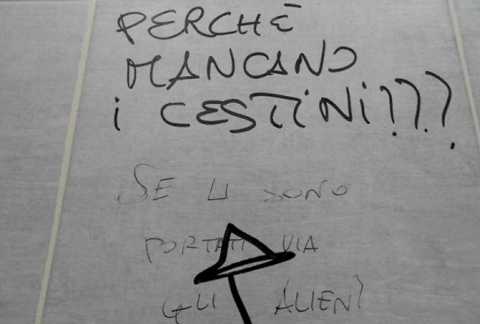 PERCHÈ
MANCANO
i CESTINI???
SE LI SONO
PORTATI VIA
GLI ALIENI